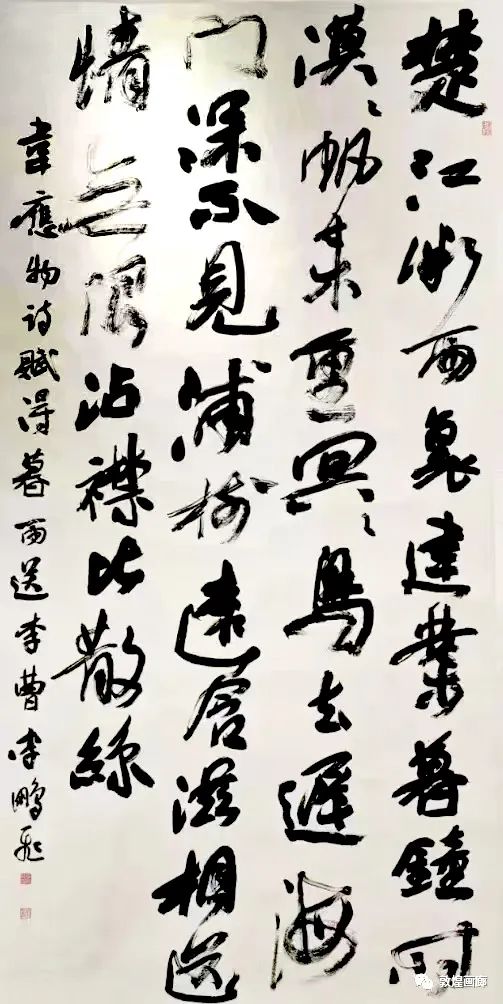 楚江微雨裏建業暮鐘时
漠々帆来重冥々鳥去遲海
门深不見浦树遠含滋相送
情无限沾襟比散絲
韋應物诗賦得暮雨送李曹 李鵬飛
敦煌画廊